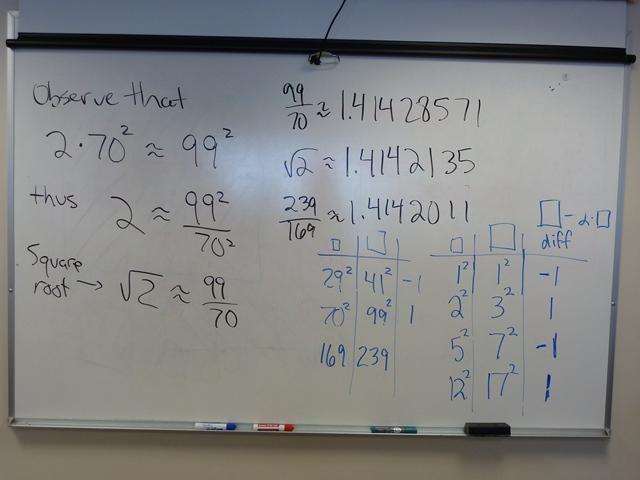 Observe that
2·70² ≈ 99²
thus 2 ≈ 99²/70²
Square root → √2 ≈ 99/70
99/70 ≈ 1.41428571
√2 ≈ 1.4142135
239/169 ≈ 1.4142011
□ □
29² 41² -1
70² 99² 1
169 239
□ □ □-2·□ diff
1² 1² -1
2² 3² 1
5² 7² -1
12² 17² 1